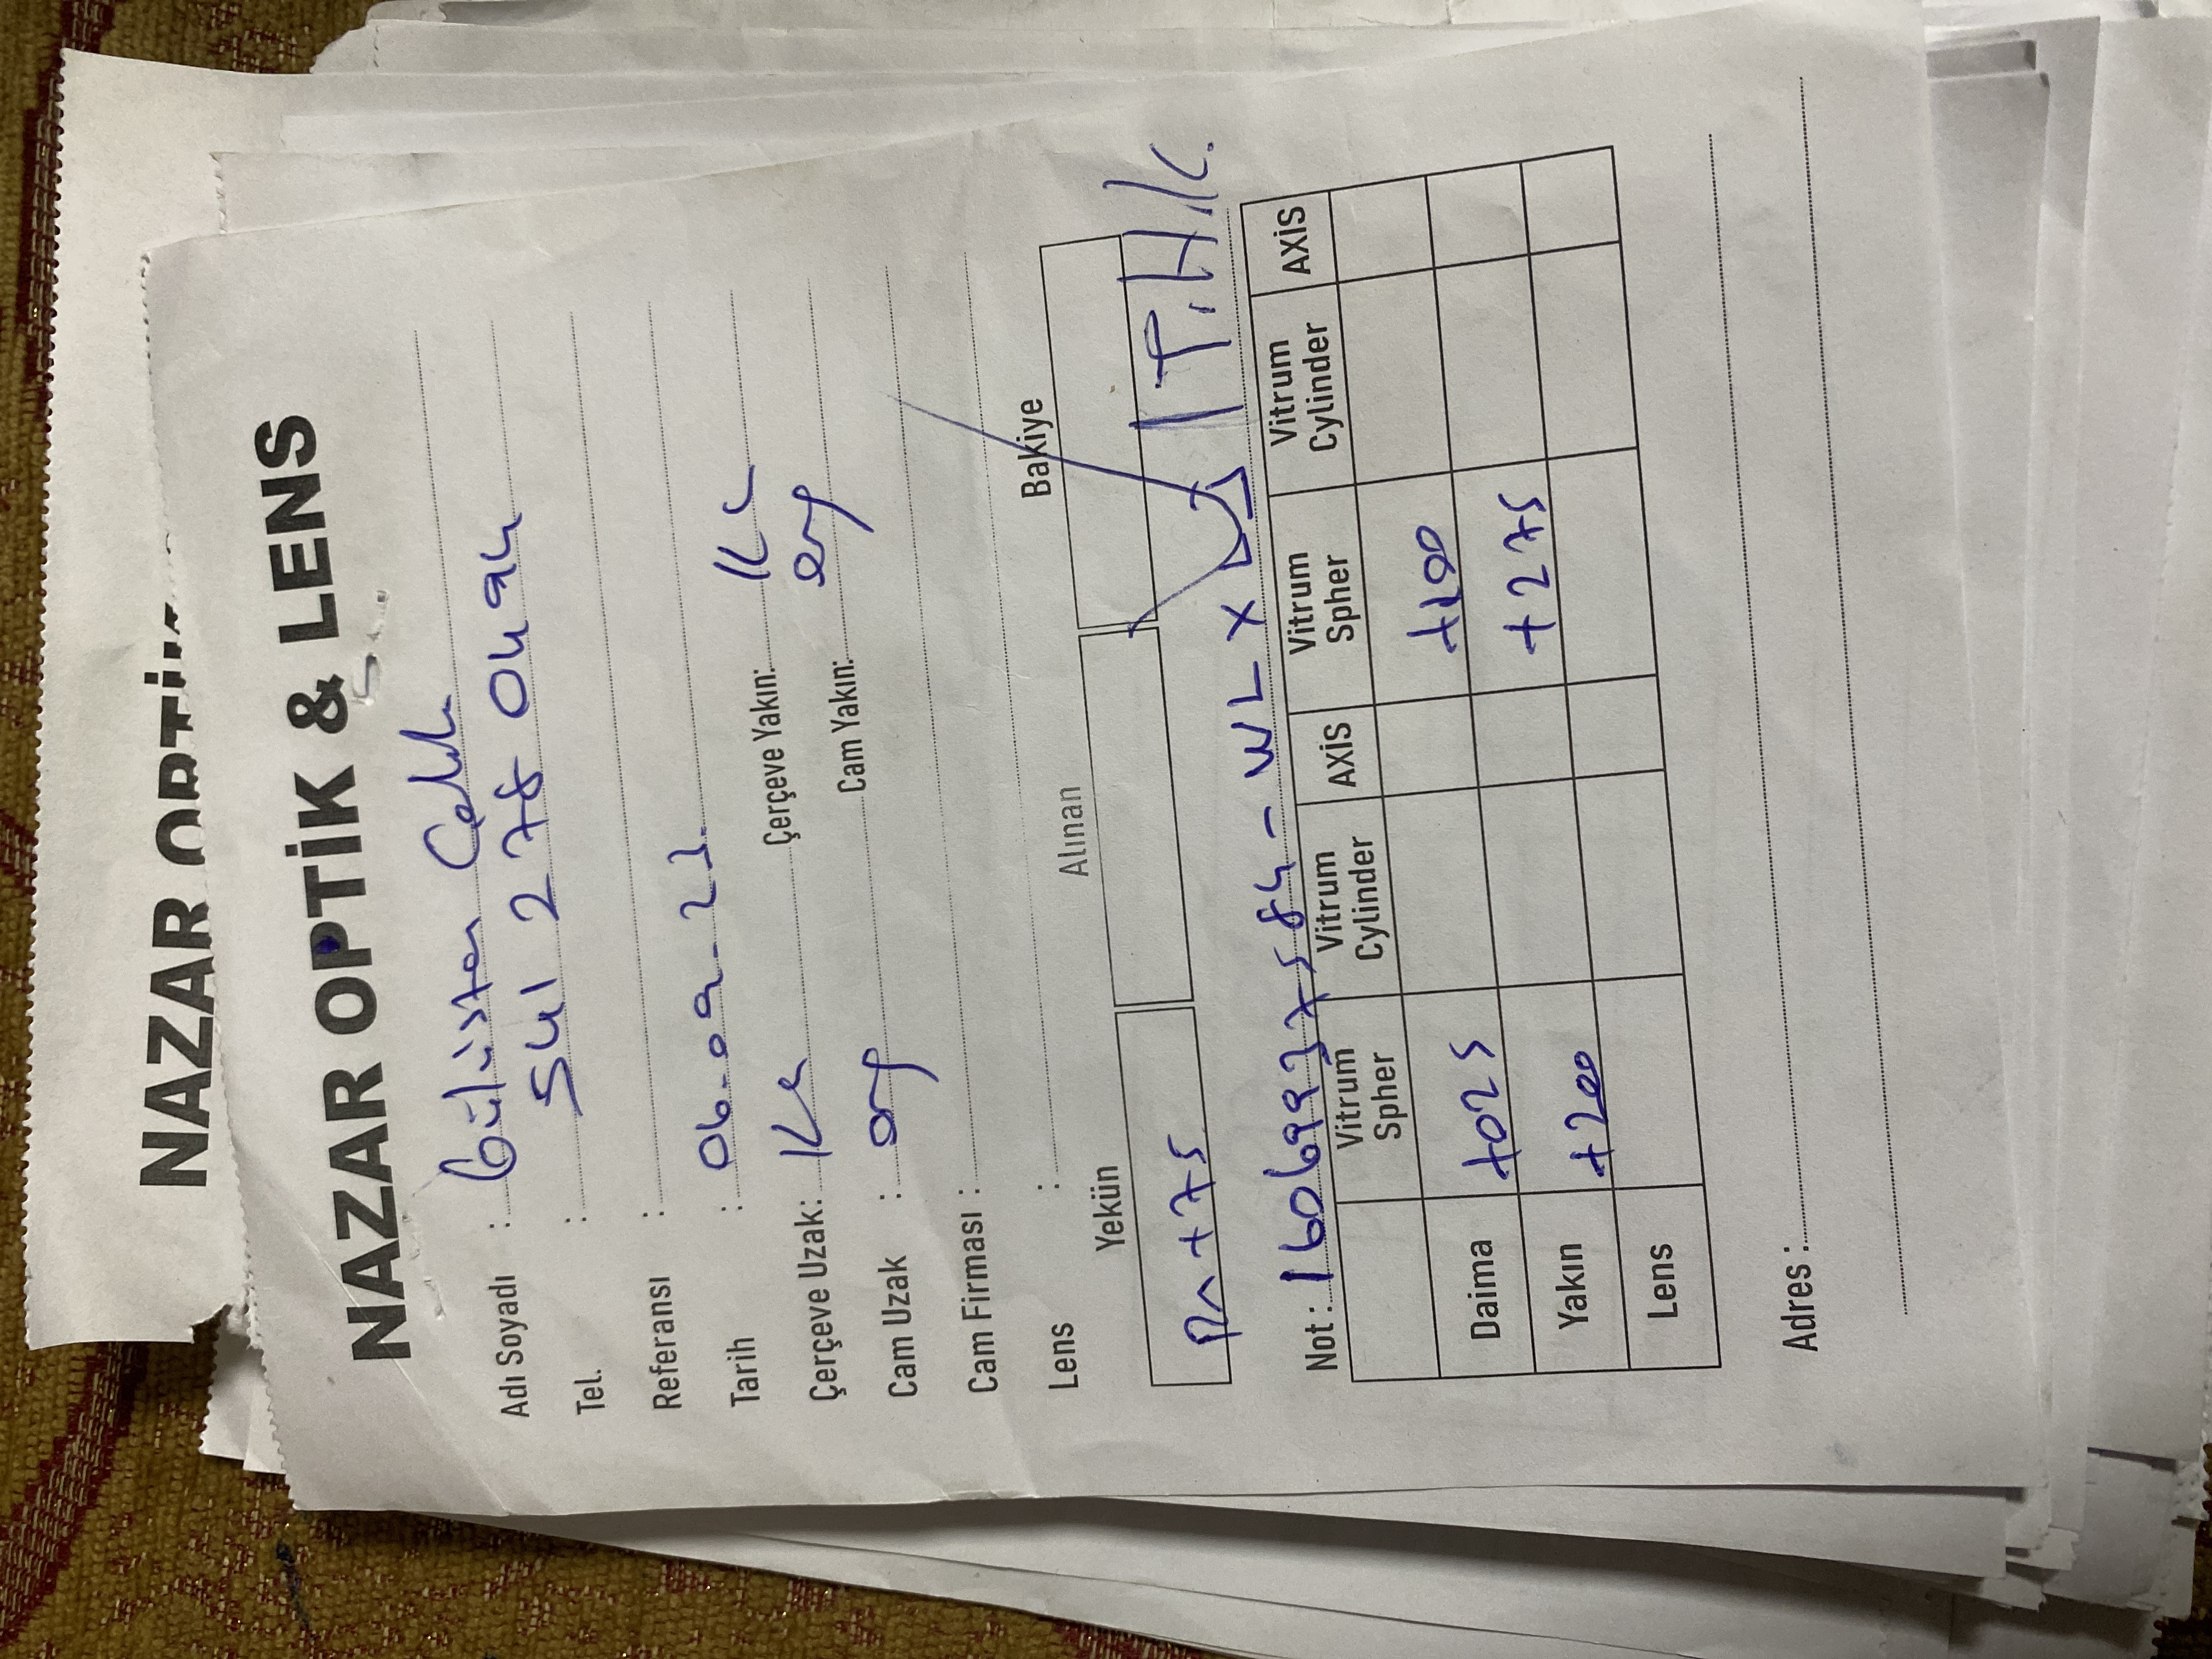 NAZAR OPTİK
NAZAR OPTİK & LENS
Adı Soyadı : Gülistan Çelik
Tel. : 541 278 0494
Referansı :
Tarih : 06-09-23.
Çerçeve Uzak: Çerçeve Yakın:
Cam Uzak : org Cam Yakın: org
Cam Firması :
Lens :
Yekün Alınan Bakiye
+75
T.H.K.
Not : 16069937584 - WLX
Vitrum Spher Vitrum Cylinder AXİS Vitrum Spher Vitrum Cylinder AXİS
Daima +025 +100
Yakın +200 +275
Lens
Adres :